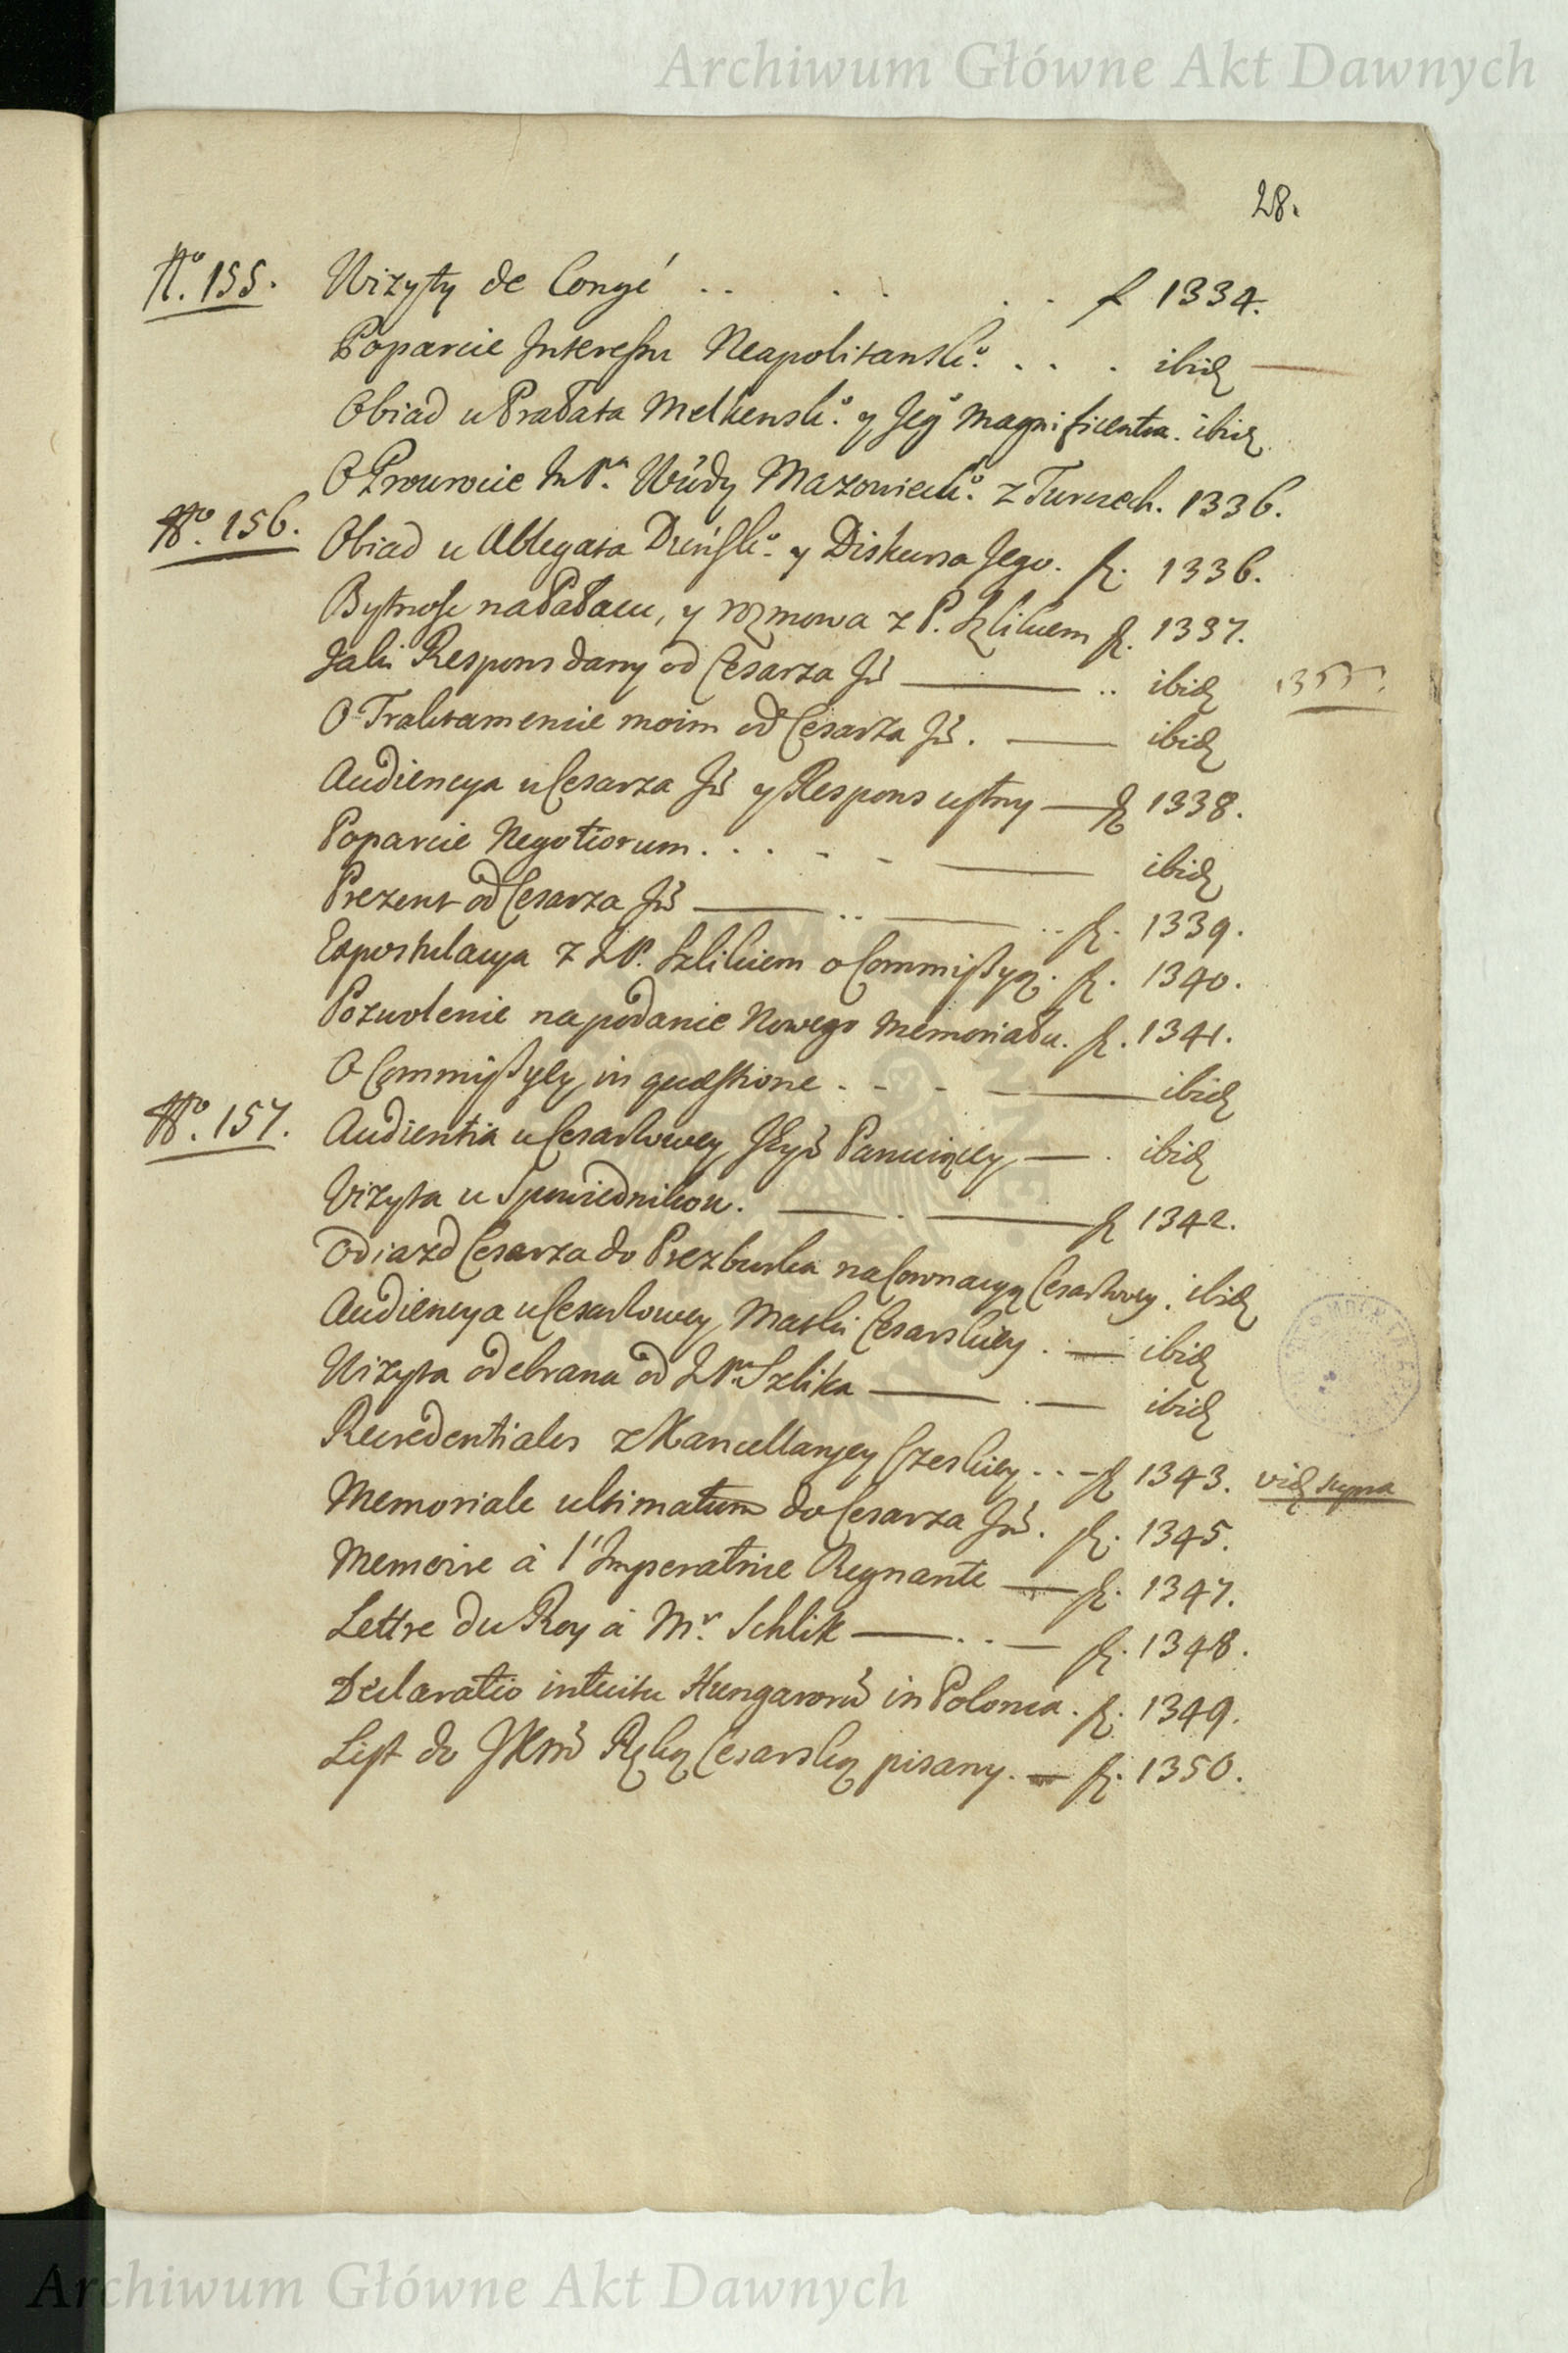 Archiwum Główne Akt Dawnych
28.
No. 155. Wizyty de Congé .. . . . . f 1334.
Poparcie Interessu Neapolitansko. . . . ibid
Obiad u Prałata Melkensko. y Jego Magnificentia. ibid.
O Powrocie Wdy Mazowiecko. z Turczech. 1336.
No. 156. Obiad u Ablegata Duńsko. y Diskursa Jego. f. 1336.
Bytnosc na Pałacu, y rozmowa z P. Szlikiem f. 1337.
Jaki Respons dany od Cesarza Jm .. ibid 1355.
O Traktamencie moim od Cesarza Jm. ibid
Audiencya u Cesarza Jm y Respons ustny f 1338.
Poparcie Negotiorum. . . . - - ibid
Prezent od Cesarza Jm .. .. f. 1339.
Expostulacya z JP. Szlikiem o Commissyą. f. 1340.
Pozwolenie na podanie Nowego Memoriału. f. 1341.
O Commissyey in quæstione . - - ibid
No. 157. Audientia u Cesarzowey Panuiącey . ibid
Wizyta u Spowiednikow. . f 1342.
Odiazd Cesarza do Prezburka na Coronacyą Cesarzowey. ibid
Audiencya u Cesarzowey Matki Cesarskiey . . ibid
Wizyta odebrana od JPa Szlika . ibid
Recredentiales z Kancellaryey Czeskiey . . - f 1343. vid supra
Memoriale ultimatum do Cesarza Jm. f. 1345.
Memoire à l'Imperatrice Regnante f. 1347.
Lettre du Roy à Mr. Schlik . . f. 1348.
Declaratio intuitu Hungarorum in Polonia. f. 1349.
List do JKM Ręką Cesarską pisany. f. 1350.
Archiwum Główne Akt Dawnych